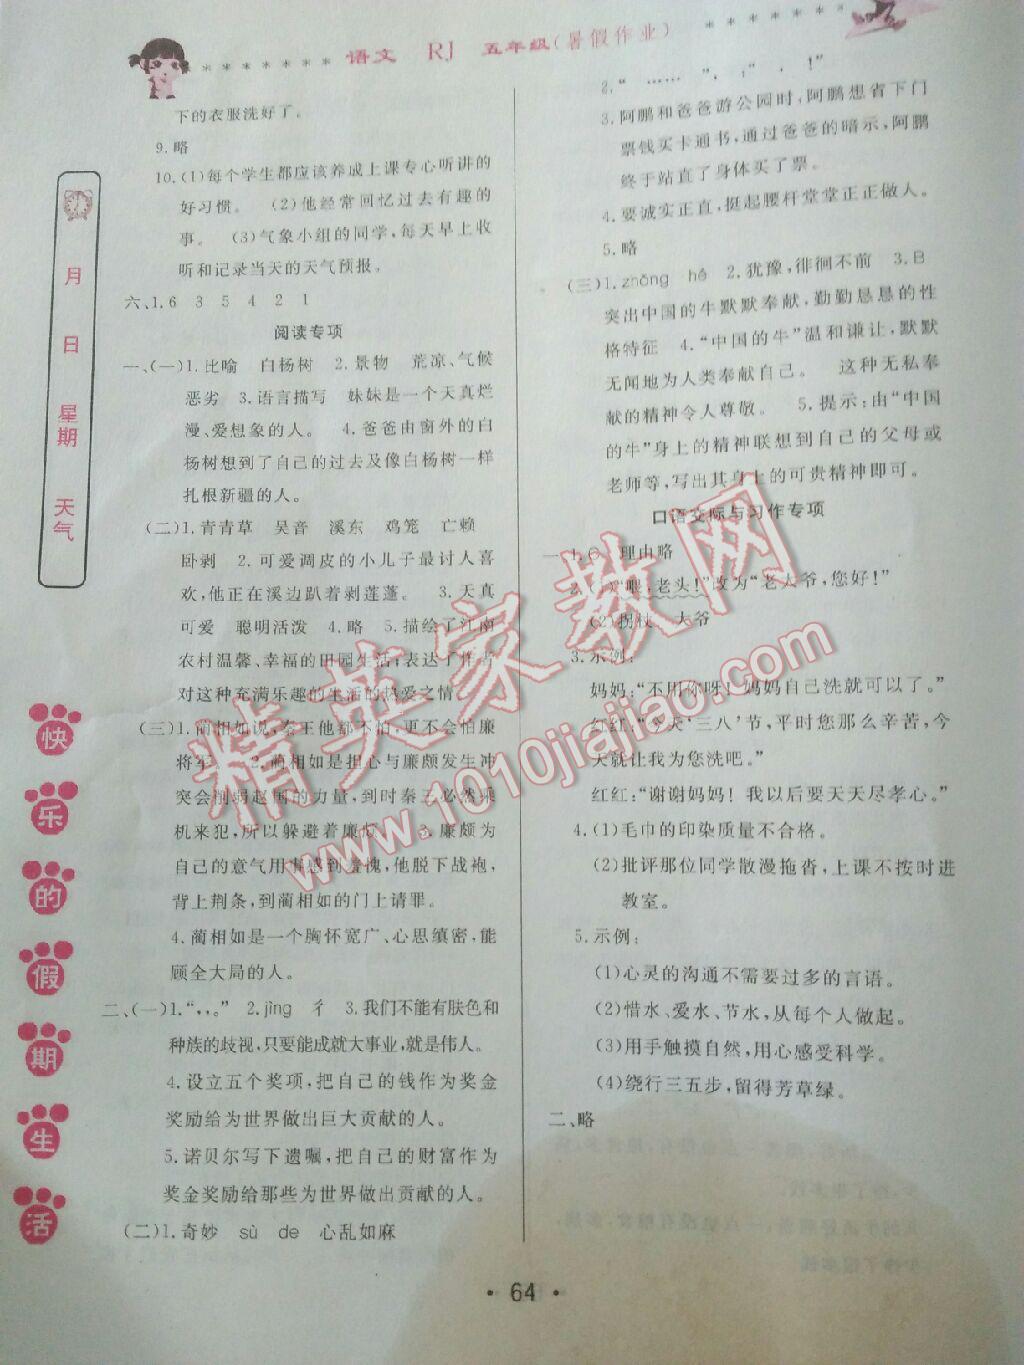 语文 RJ 五年级(暑假作业)
月
日
星期
天气
快乐的假期生活
下的衣服洗好了。
9.略
10.(1)每个学生都应该养成上课专心听讲的
好习惯。 (2)他经常回忆过去有趣的
事。 (3)气象小组的同学,每天早上收
听和记录当天的天气预报。
六、1.6 3 5 4 2 1
阅读专项
一、(一)1.比喻 白杨树 2.景物 荒凉、气候
恶劣 3.语言描写 妹妹是一个天真烂
漫、爱想象的人。 4.爸爸由窗外的白
杨树想到了自己的过去及像白杨树一样
扎根新疆的人。
(二)1.青青草 吴音 溪东 鸡笼 亡赖
卧剥 2.可爱调皮的小儿子最讨人喜
欢,他正在溪边趴着剥莲蓬。 3.天真
可爱 聪明活泼 4.略 5.描绘了江南
农村温馨、幸福的田园生活;表达了作者
对这种充满乐趣的生活的热爱之情。
(三)1.蔺相如说,秦王他都不怕,更不会怕廉
将军。 2.蔺相如是担心与廉颇发生冲
突会削弱赵国的力量,到时秦王必然乘
机来犯,所以躲避着廉颇。 3.廉颇为
自己的意气用事感到羞愧,他脱下战袍,
背上荆条,到蔺相如的门上请罪。
4.蔺相如是一个胸怀宽广、心思缜密,能
顾全大局的人。
二、(一)1.“,,。” 2.jìng 彳 3.我们不能有肤色和
种族的歧视,只要能成就大事业,就是伟人。
4.设立五个奖项,把自己的钱作为奖金
奖励给为世界做出巨大贡献的人。
5.诺贝尔写下遗嘱,把自己的财富作为
奖金奖励给那些为世界做出贡献的人。
(二)1.奇妙 sù de 心乱如麻
2.“ …… ”, : “ , !”
3.阿鹏和爸爸游公园时,阿鹏想省下门
票钱买卡通书,通过爸爸的暗示,阿鹏
终于站直了身体买了票。
4.要诚实正直,挺起腰杆堂堂正正做人。
5.略
(三)1.zhōng hé 2.犹豫,徘徊不前 3.B
突出中国的牛默默奉献,勤勤恳恳的性
格特征 4.“中国的牛”温和谦让,默默
无闻地为人类奉献自己。 这种无私奉
献的精神令人尊敬。 5.提示:由“中国
的牛”身上的精神联想到自己的父母或
老师等,写出其身上的可贵精神即可。
口语交际与习作专项
一、1.C 理由略
2.(1)“喂,老头!”改为“老大爷,您好!”
(2)拐杖 大爷
3.示例:
妈妈:“不用你呀!妈妈自己洗就可以了。”
红红:“今天‘三八’节,平时您那么辛苦,今
天就让我为您洗吧。”
红红:“谢谢妈妈!我以后要天天尽孝心。”
4.(1)毛巾的印染质量不合格。
(2)批评那位同学散漫拖沓,上课不按时进
教室。
5.示例:
(1)心灵的沟通不需要过多的言语。
(2)惜水、爱水、节水,从每个人做起。
(3)用手触摸自然,用心感受科学。
(4)绕行三五步,留得芳草绿。
二、略
• 64 •
精英家教网
www.1010jiajiao.com